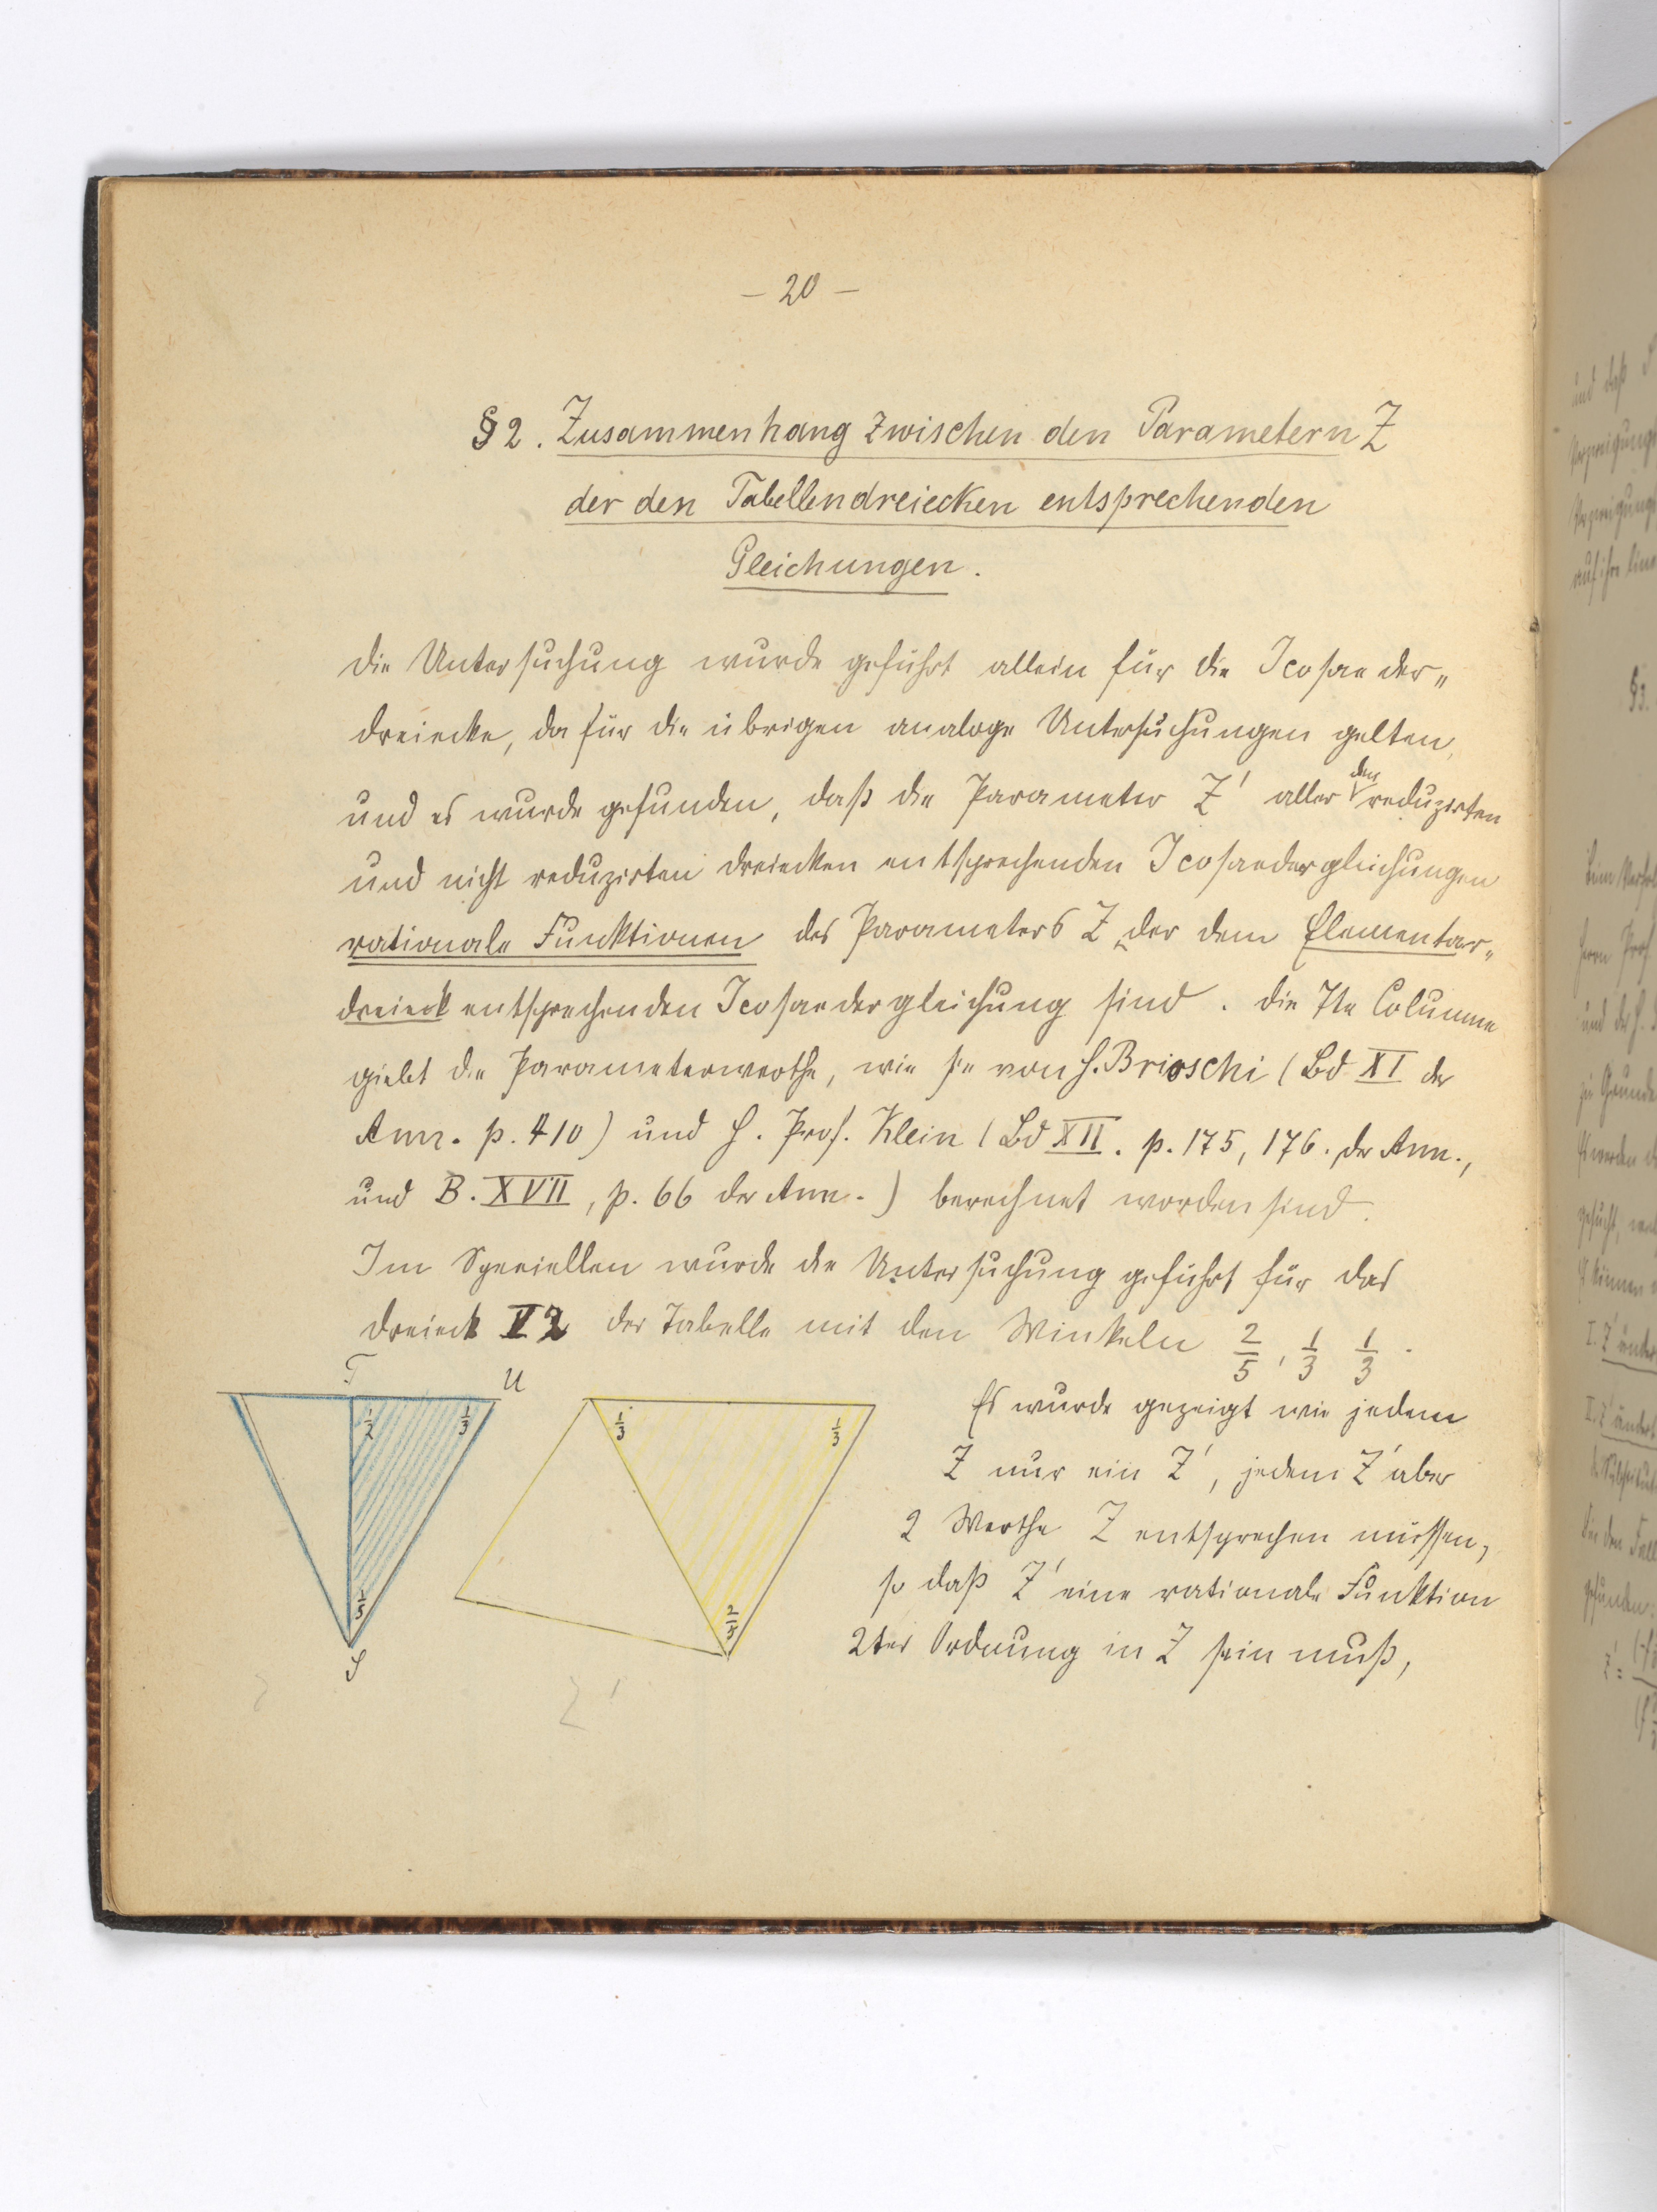 – 20 –
§ 2. Zusammenhang zwischen den Parametern Z
der den Tabellendreiecken entsprechenden
Gleichungen.
Die Untersuchung wurde geführt allein für die Icosaeder„
dreiecke, da für die übrigen analoge Untersuchungen gelten,
und es wurde gefunden, daß die Parameter Z' aller den reduzirten
und nicht reduzirten Dreiecken entsprechenden Icosaedergleichungen
rationale Funktionen des Parameters Z der dem Elementar„
dreieck entsprechenden Icosaedergleichung sind. Die 7te Columne
giebt die Parameterwerthe, wie sie von H. Brioschi (Bd XI der
Ann. p. 410) und H. Prof. Klein (Bd XII. p. 175, 176. der Ann.,
und B. XVII, p. 66 der Ann.) berechnet worden sind.
Im Speciellen wurde die Untersuchung geführt für das
Dreieck V 2 der Tabelle mit den Winkeln 2/5, 1/3 1/3.
T U
1/2 1/3
1/5
S
1/3 1/3
2/5
Z'
Es wurde gezeigt wie jedem
Z nur ein Z', jedem Z' aber
2 Werthe Z entsprechen müssen,
so daß Z' eine rationale Funktion
2ter Ordnung in Z sein muß,